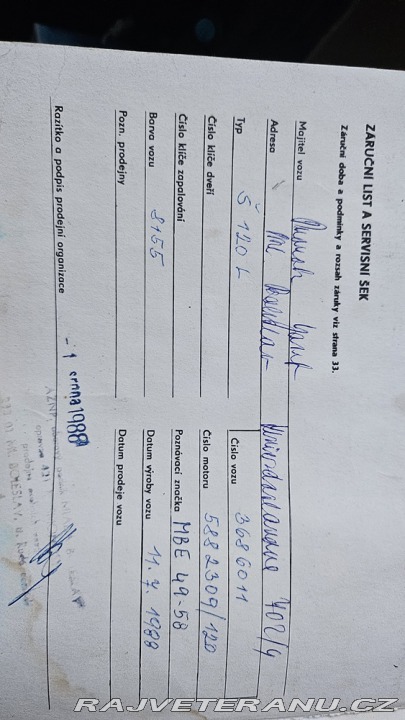 ZÁRUČNÍ LIST A SERVISNÍ ŠEK
Záruční doba a podmínky a rozsah záruky viz strana 33.
Majitel vozu
Adresa
Typ Š 120 L Číslo vozu 3686011
Číslo klíče dveří Číslo motoru 5882309/120
Číslo klíče zapalování Poznávací značka MBE 49-58
Barva vozu 8155 Datum výroby vozu 11. 7. 1988
Pozn. prodejny Datum prodeje vozu
Razítko a podpis prodejní organizace
- 1 srpna 1988
RAJVETERANU.CZ